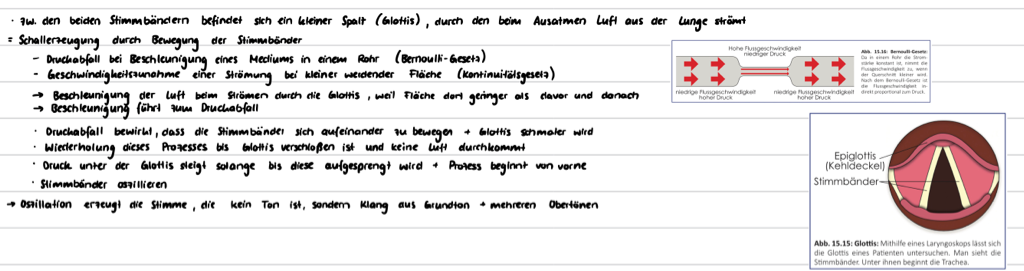 · zw. den beiden Stimmbändern befindet sich ein kleiner Spalt (Glottis), durch den beim Ausatmen Luft aus der Lunge strömt
= Schallerzeugung durch Bewegung der Stimmbänder
- Druckabfall bei Beschleunigung eines Mediums in einem Rohr (Bernoulli-Gesetz)
- Geschwindigkeitszunahme einer Strömung bei kleiner werdender Fläche (Kontinuitätsgesetz)
→ Beschleunigung der Luft beim Strömen durch die Glottis, weil Fläche dort geringer als davor und danach
→ Beschleunigung führt zum Druckabfall
· Druckabfall bewirkt, dass die Stimmbänder sich aufeinander zu bewegen + Glottis schmaler wird
· Wiederholung dieses Prozesses bis Glottis verschloßen ist und keine Luft durchkommt
· Druck unter der Glottis steigt solange bis diese aufgesprengt wird + Prozess beginnt von vorne
· Stimmbänder oszillieren
→ Oszillation erzeugt die Stimme, die kein Ton ist, sondern Klang aus Grundton + mehreren Obertönen
Hohe Flussgeschwindigkeit
niedriger Druck
niedrige Flussgeschwindigkeit
hoher Druck
niedrige Flussgeschwindigkeit
hoher Druck
Abb. 15.16: Bernoulli-Gesetz:
Da in einem Rohr die Strom-
stärke konstant ist, nimmt die
Flussgeschwindigkeit zu, wenn
der Querschnitt kleiner wird.
Nach dem Bernoulli-Gesetz ist
die Flussgeschwindigkeit in-
direkt proportional zum Druck.
Epiglottis
(Kehldeckel)
Stimmbänder
Abb. 15.15: Glottis: Mithilfe eines Laryngoskops lässt sich
die Glottis eines Patienten untersuchen. Man sieht die
Stimmbänder. Unter ihnen beginnt die Trachea.